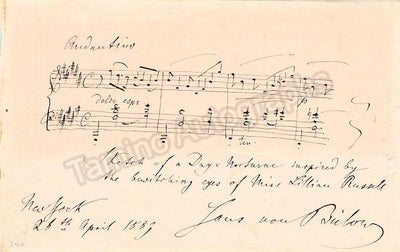 Andantino
dolce espr
p
ten.
Tamino Autographs
Sketch of a Duga Nocturne inspired by
the bewitching eyes of Miss Lillian Russell
New York
26th April 1889
Hans von Bülow